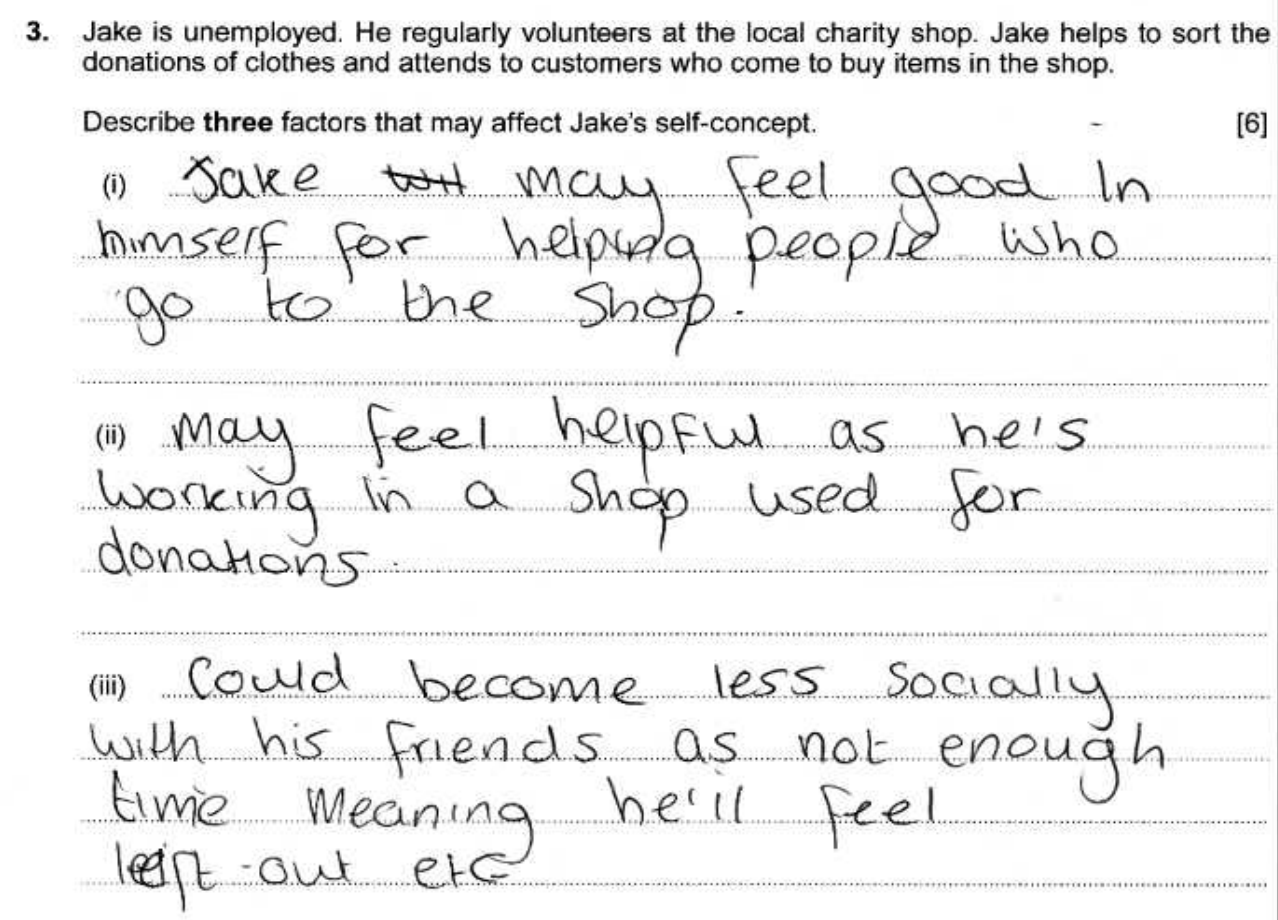 3. Jake is unemployed. He regularly volunteers at the local charity shop. Jake helps to sort the
donations of clothes and attends to customers who come to buy items in the shop.
Describe three factors that may affect Jake's self-concept. [6]
(i) Jake may feel good in
himself for helping people who
go to the shop.
(ii) may feel helpful as he's
working in a shop used for
donations.
(iii) Could become less socially
with his friends as not enough
time meaning he'll feel
left out etc